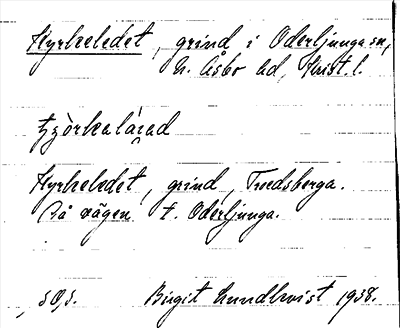 Kyrkeledet, grind i Oderljunga sn,
N. Åsbo hd, Krist. l.
Kyrkeledet, grind, Tredsberga.
På vägen t. Oderljunga.
Birgit Lundkvist 1938.